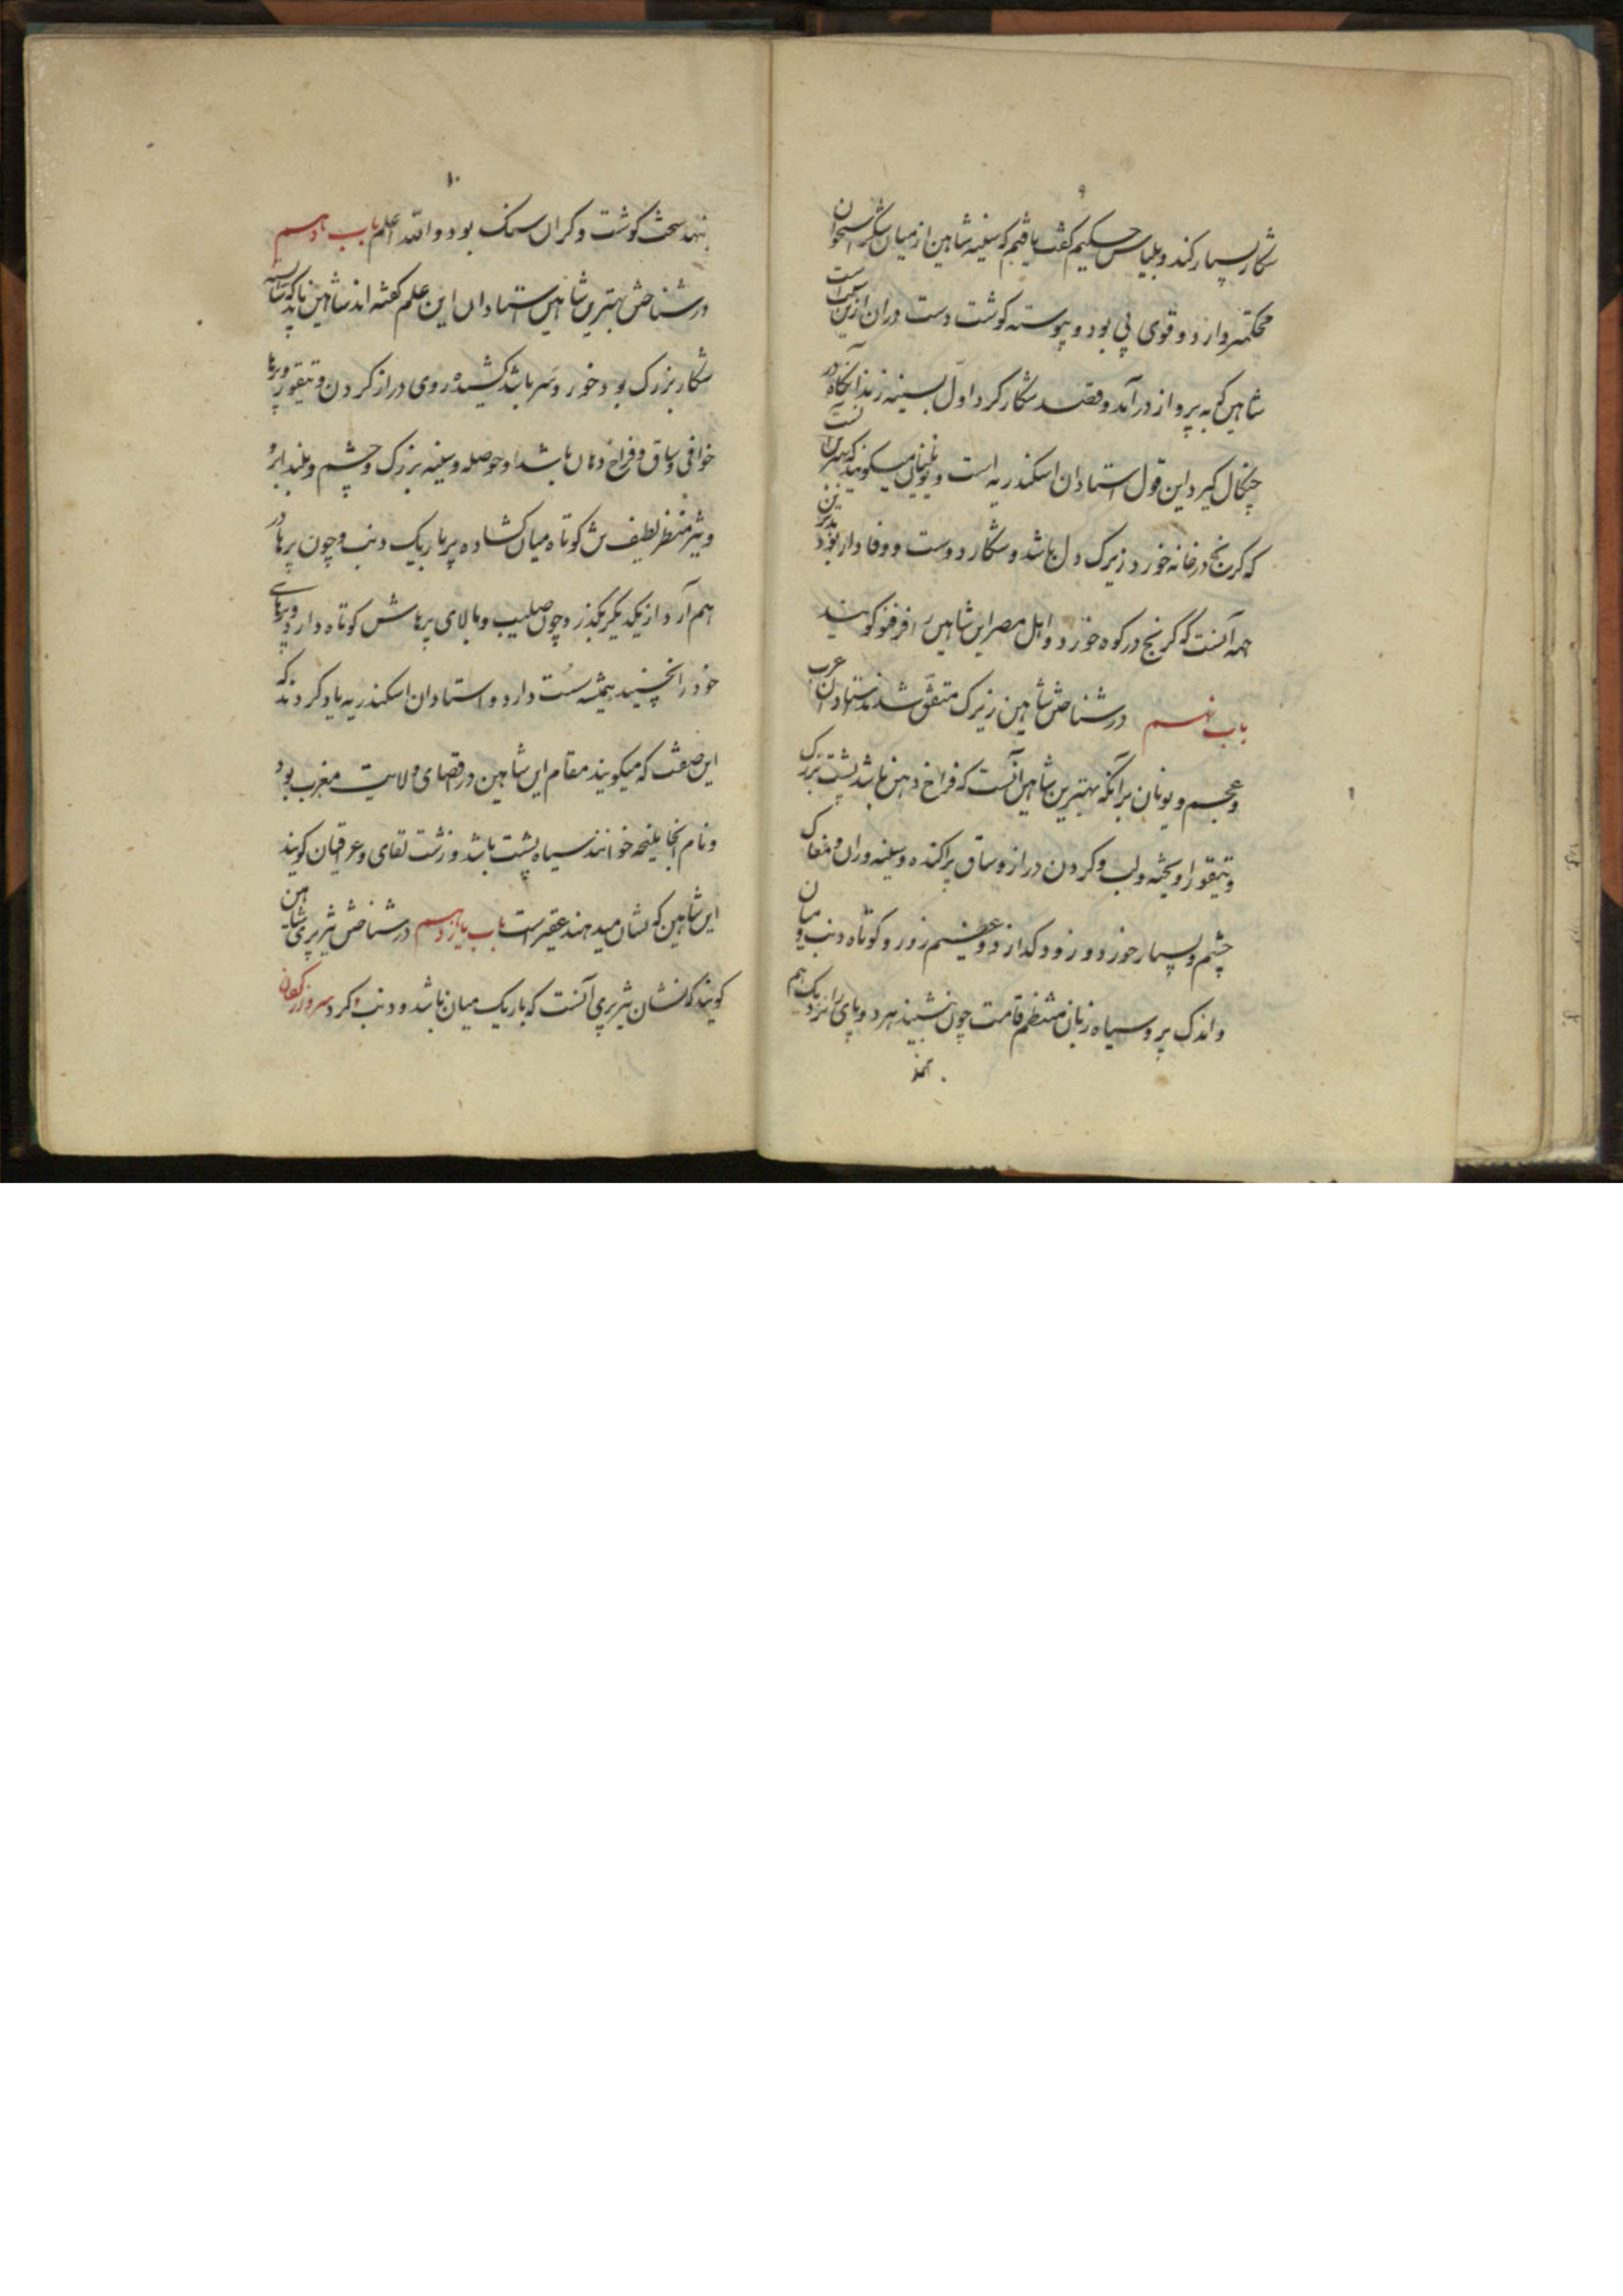 ۹
شکار بسیار کند و بلیناس حکیم گفت یافتیم که سینه شاهین از میان شکر استخوان
محکمتر دارد و قوی پی بود و پیوسته گوشت دست دران ازین سبب است
شاهین که به پرواز درآمد و قصد شکار کرد اول بسینه زند آنگاه در
چنگال گیرد این قول استادان اسکندریه است و یونانی میگویند که بهترین آنست
که کرنج در خانه خورد زیرک دل باشد و شکار دوست و وفادار بود
همه آنست که کرنج در کوه خورد و اهل مصر این شاهین را گویند
باب نهم در شناختن شاهین زیرک متفق شدند استادان عرب
و عجم و یونان برآنکه بهترین شاهین آنست که فراخ دهن باشد پشت بزرگ
و تیتقور آویخته و لب و گردن دراز و ساق پراکنده و سینه و ران و مغاک
چشم و بسیار خورد و زود گدازد و عظیم زور و کوتاه دنب و میان
و اندک پر و سیاه زبان منتظم قامت چون نشیند هر دو پای را نزدیک هم
نهد
۱۰
نهد سخت گوشت و گران سنگ بود والله اعلم باب دهم
در شناختن بهترین شاهین استادان این علم گفته اند شاهین باید که
شکار بزرگ بود خورد سر باشد کشیده روی دراز گردن و تیتقور و پرها
خوافی و ساق و فراخ دهان باشد او حوصله و سینه بزرگ و چشم و بلند ابرو
و تیز منظر لطیف کوتاه میان گشاده پر باریک دنب و چون پرها در
هم آرد از یکدیگر بگذرد چون صلیب و بالای پرهاش کوتاه دارد و پرهای
خود را همچنین همیشه سست دارد و استادان اسکندریه یاد کردند که
این صفت که میگویند مقام این شاهین در اقصای ولایت مغرب بود
و نام آنجا خوانند سیاه پشت باشد و زشت لقای و عراقیان گویند
این شاهین که نشان میدهند عقیر است باب یازدهم در شناختن تیزپری شاهین
گویند که نشان تیزپری آنست که باریک میان باشد و دنب و گرد سر و بزرگ